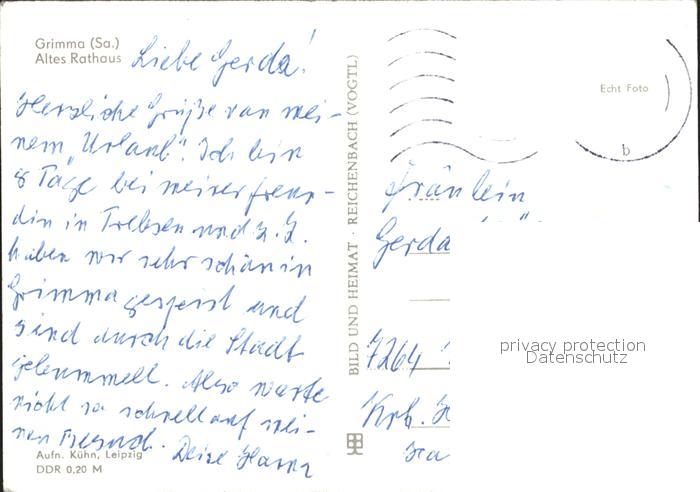 Grimma (Sa.)
Altes Rathaus
Liebe Gerda!
Herzliche Grüße von mei-
nem "Urlaub". Ich bin
8 Tage bei meiner Freun-
din in Trebsen und z. Z.
haben wir sehr schön in
Grimma gespeist und
sind durch die Stadt
gebummelt. Also warte
nicht so schnell auf mei-
nen
Deine
Aufn. Kühn, Leipzig
DDR 0,20 M
BILD UND HEIMAT · REICHENBACH (VOGTL)
Echt Foto
b
Fräulein
Gerda
7264
Krs.
privacy protection
Datenschutz